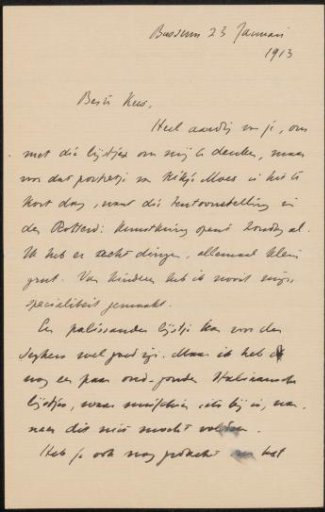 Bussum 23 Januari
1913
Beste Kees,
Heel aardig van je, om
met die lijstjes om mij te denken, maar
voor dat portretje van Kikje Maes is het te
kort dag, want die tentoonstelling in
den Rotterd: Kunstkring opent Zondag al.
Ik heb er acht dingen, allemaal klein
grut. Van kinderen heb ik nooit mijn
specialiteit gemaakt.
Een palissander lijstje kan voor den
Seghers wel goed zijn. Maar ik heb
nog een paar oud-gouden Italiaansche
lijstjes, waar misschien iets bij is, van-
naar dit niet mocht voldoen.
Heb je ook nog gedacht het